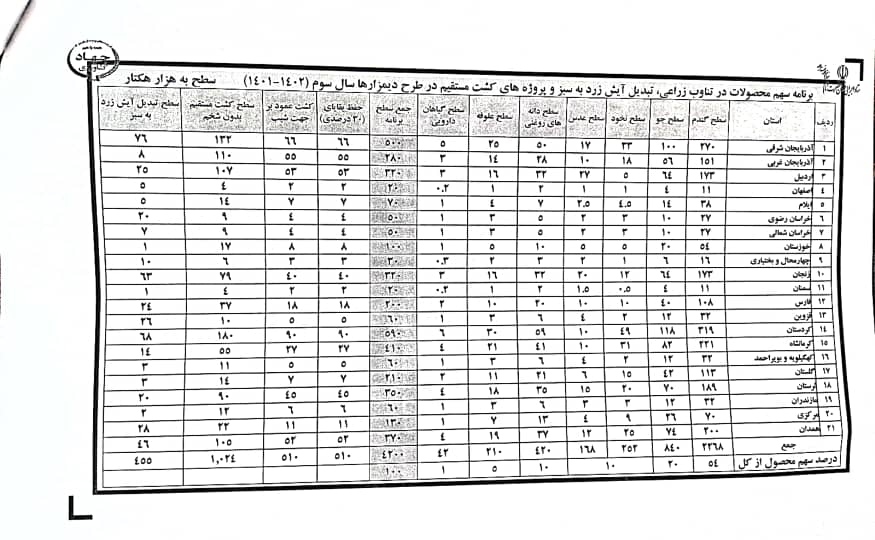 جهاد
برنامه سهم محصولات در تناوب زراعی، تبدیل آیش زرد به سبز و پروژه های کشت مستقیم در طرح دیمزارها سال سوم (۱۴۰۲-۱۴۰۱) سطح به هزار هکتار
ردیف استان سطح گندم سطح جو سطح نخود سطح عدس سطح دانه های روغنی سطح علوفه سطح گیاهان دارویی جمع سطح برنامه حفظ بقایای (۳۰ درصدی) کشت عمود بر جهت شیب سطح کشت مستقیم بدون شخم سطح تبدیل آیش زرد به سبز
۱ آذربایجان شرقی ۲۷۰ ۱۰۰ ۳۳ ۱۷ ۵۰ ۲۵ ۵ ۵۰۰ ۶۶ ۶۶ ۱۳۲ ۷۶
۲ آذربایجان غربی ۱۵۱ ۵۶ ۱۸ ۱۰ ۲۸ ۱۴ ۳ ۲۸۰ ۵۵ ۵۵ ۱۱۰ ۸
۳ اردبیل ۱۷۳ ۶۴ ۵ ۲۷ ۳۲ ۱۶ ۳ ۳۲۰ ۵۳ ۵۳ ۱۰۷ ۲۵
۴ اصفهان ۱۱ ۴ ۱ ۱ ۲ ۱ ۰.۲ ۲۰ ۲ ۲ ۴ ۵
۵ ایلام ۳۸ ۱۴ ۴.۵ ۲.۵ ۷ ۴ ۱ ۷۰ ۷ ۷ ۱۴ ۵
۶ خراسان رضوی ۲۷ ۱۰ ۳ ۲ ۵ ۳ ۱ ۵۰ ۴ ۴ ۹ ۲۰
۷ خراسان شمالی ۲۷ ۱۰ ۳ ۲ ۵ ۳ ۱ ۵۰ ۴ ۴ ۹ ۷
۸ خوزستان ۵۴ ۲۰ ۵ ۵ ۱۰ ۵ ۱ ۱۰۰ ۸ ۸ ۱۷ ۱
۹ چهارمحال و بختیاری ۱۶ ۶ ۱ ۲ ۳ ۲ ۰.۳ ۳۰ ۳ ۳ ۶ ۱۰
۱۰ زنجان ۱۷۳ ۶۴ ۱۲ ۲۰ ۳۲ ۱۶ ۳ ۳۲۰ ۴۰ ۴۰ ۷۹ ۶۳
۱۱ سمنان ۱۱ ۴ ۰.۵ ۱.۵ ۲ ۱ ۰.۲ ۲۰ ۲ ۲ ۴ ۱
۱۲ فارس ۱۰۸ ۴۰ ۱۰ ۱۰ ۲۰ ۱۰ ۲ ۲۰۰ ۱۸ ۱۸ ۳۷ ۲۴
۱۳ قزوین ۳۲ ۱۲ ۲ ۴ ۶ ۳ ۱ ۶۰ ۵ ۵ ۱۰ ۲۶
۱۴ کردستان ۳۱۹ ۱۱۸ ۴۹ ۱۰ ۵۹ ۳۰ ۶ ۵۹۰ ۹۰ ۹۰ ۱۸۰ ۶۸
۱۵ کرمانشاه ۲۲۱ ۸۲ ۳۱ ۱۰ ۴۱ ۲۱ ۴ ۴۱۰ ۲۷ ۲۷ ۵۵ ۱۴
۱۶ کهگیلویه و بویراحمد ۳۲ ۱۲ ۲ ۴ ۶ ۳ ۱ ۶۰ ۵ ۵ ۱۱ ۳
۱۷ گلستان ۱۱۳ ۴۲ ۱۵ ۶ ۲۱ ۱۱ ۲ ۲۱۰ ۷ ۷ ۱۴ ۳
۱۸ لرستان ۱۸۹ ۷۰ ۲۰ ۱۵ ۳۵ ۱۸ ۴ ۳۵۰ ۴۵ ۴۵ ۹۰ ۲۰
۱۹ مازندران ۳۲ ۱۲ ۳ ۳ ۶ ۳ ۱ ۶۰ ۶ ۶ ۱۲ ۲
۲۰ مرکزی ۷۰ ۲۶ ۹ ۴ ۱۳ ۷ ۱ ۱۳۰ ۱۱ ۱۱ ۲۲ ۲۸
۲۱ همدان ۲۰۰ ۷۴ ۲۵ ۱۲ ۳۷ ۱۹ ۴ ۳۷۰ ۵۲ ۵۲ ۱۰۵ ۴۶
جمع ۲۲۶۸ ۸۴۰ ۲۵۲ ۱۶۸ ۴۲۰ ۲۱۰ ۴۲ ۴۲۰۰ ۵۱۰ ۵۱۰ ۱,۰۲۴ ۴۵۵
درصد سهم محصول از کل ۵۴ ۲۰ ۱۰ ۱۰ ۵ ۱ ۱۰۰